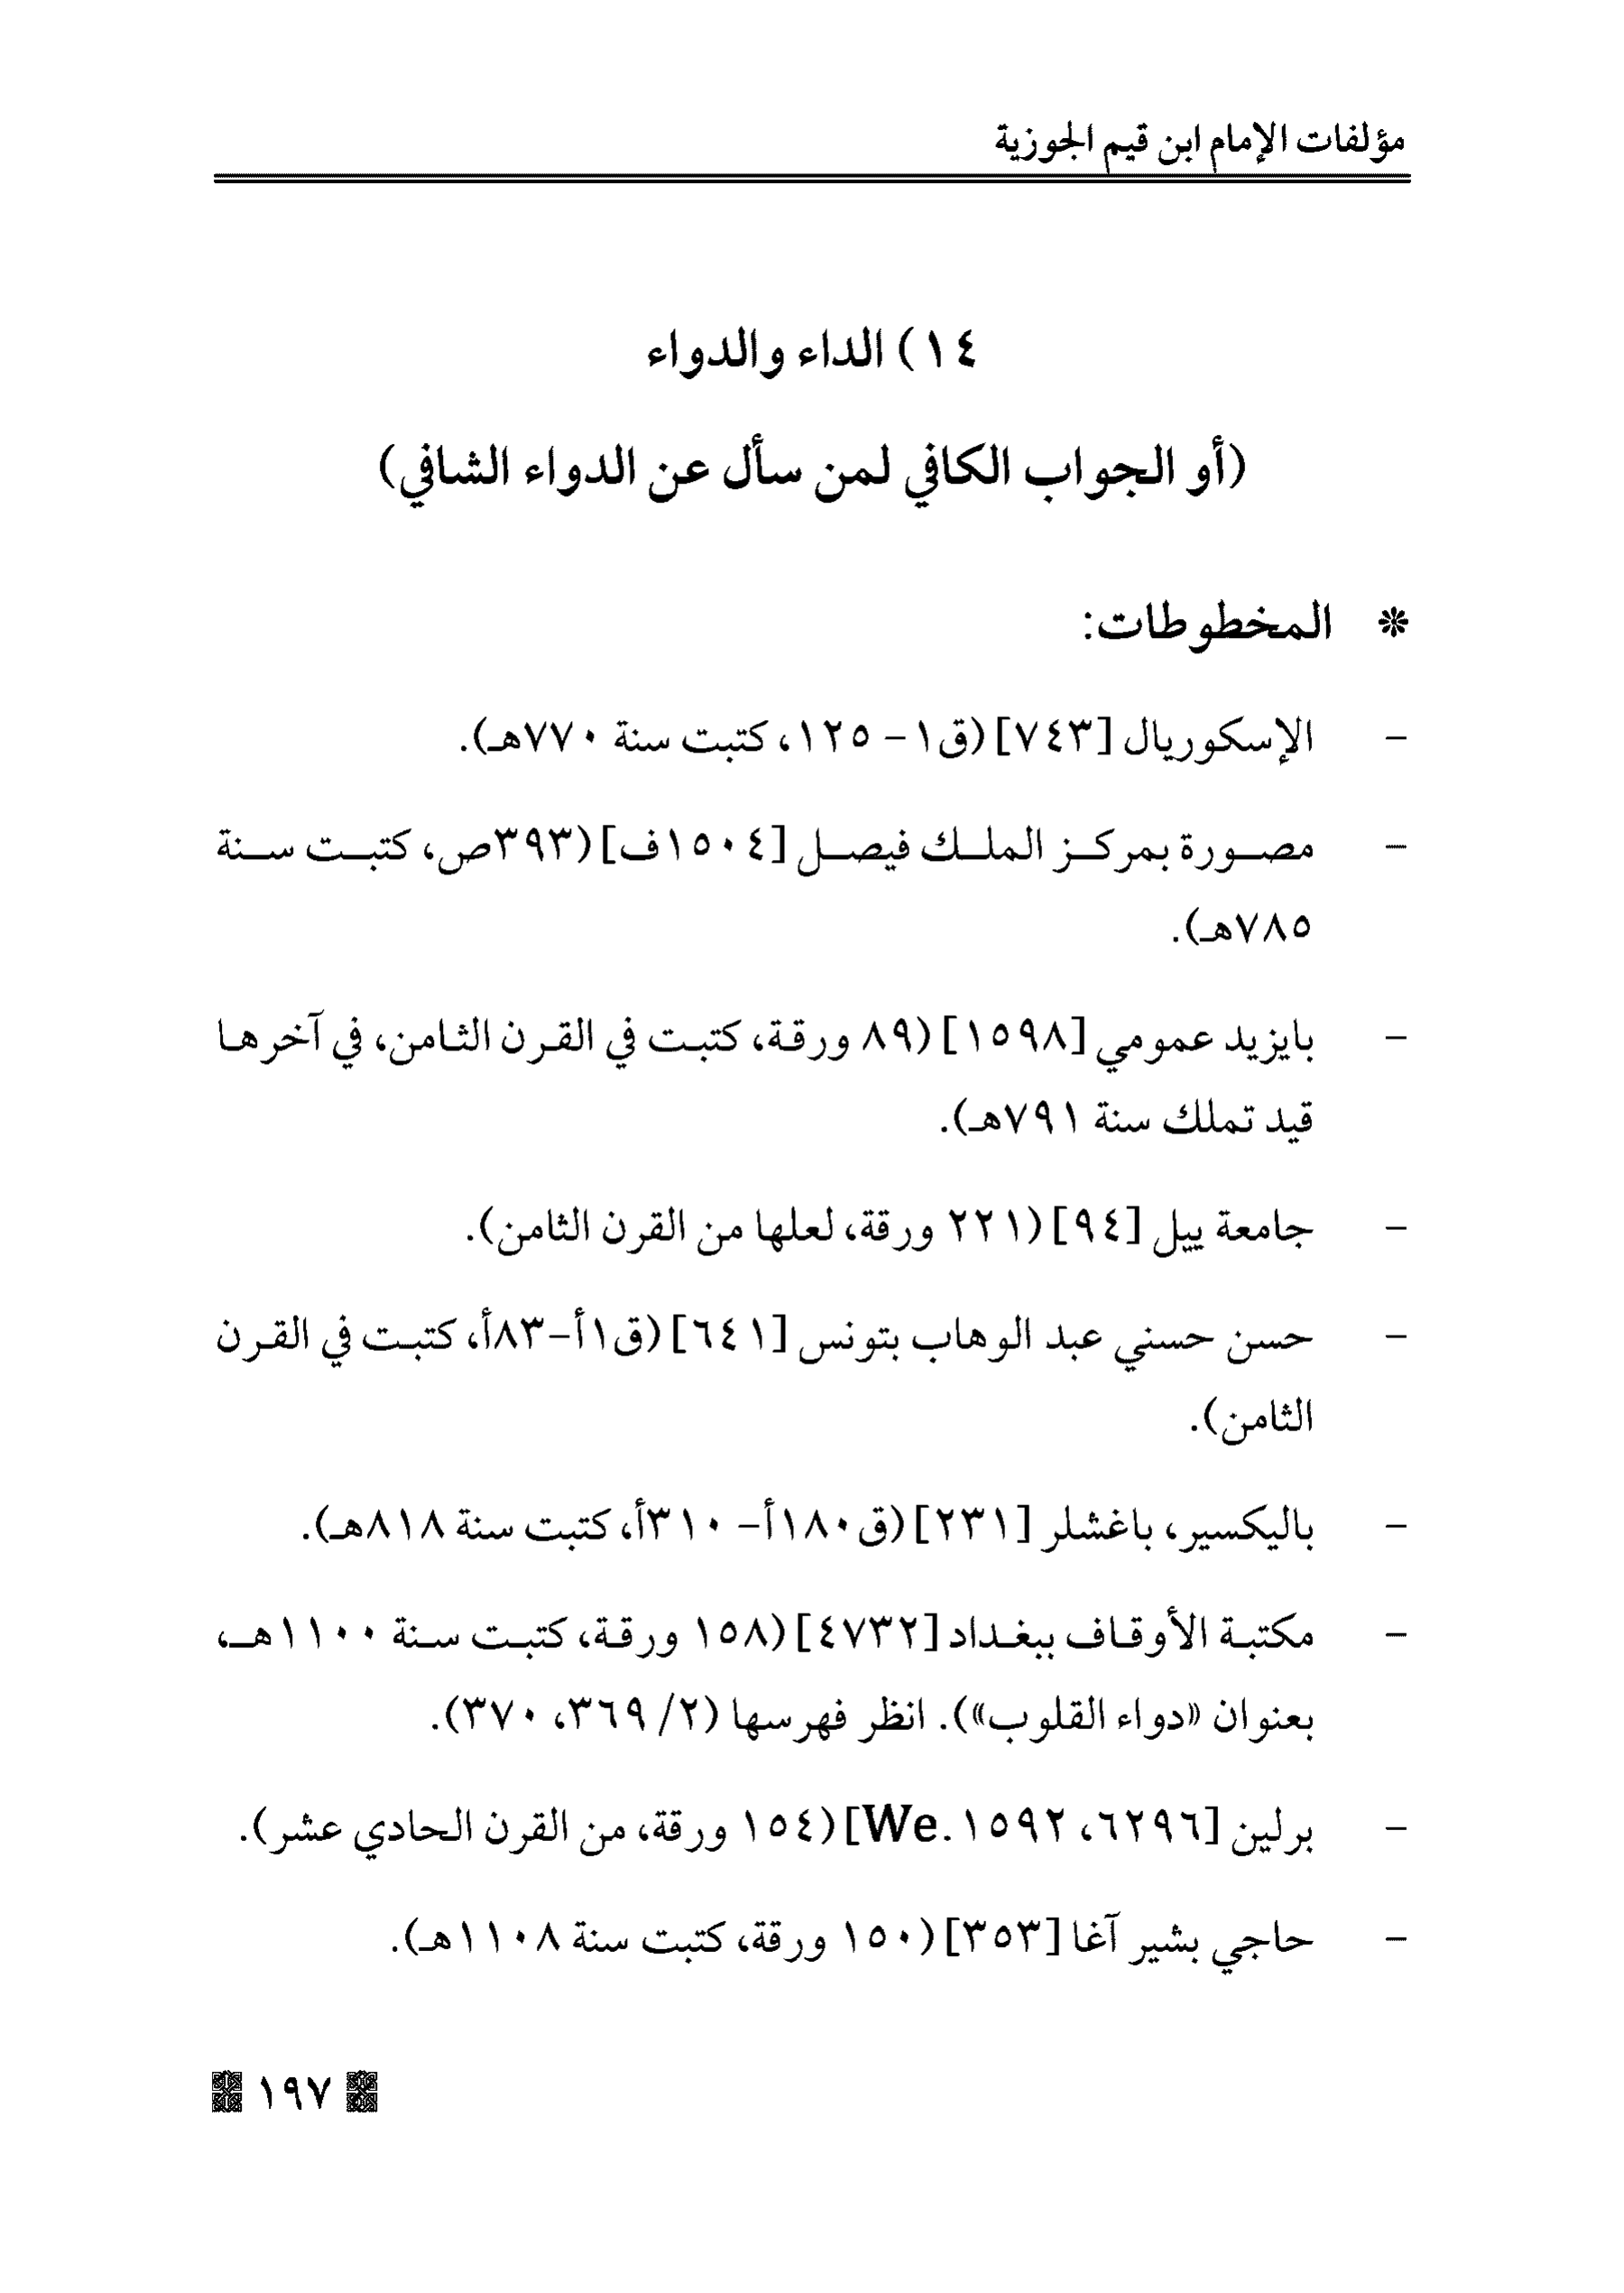 مؤلفات الإمام ابن قيم الجوزية
١٤) الداء والدواء
(أو الجواب الكافي لمن سأل عن الدواء الشافي)
* المخطوطات:
- الإسكوريال [٧٤٣] (ق١- ١٢٥، كتبت سنة ٧٧٠هـ).
- مصورة بمركز الملك فيصل [١٥٠٤ف] (٣٩٣ص، كتبت سنة
٧٨٥هـ).
- بايزيد عمومي [١٥٩٨] (٨٩ ورقة، كتبت في القرن الثامن، في آخرها
قيد تملك سنة ٧٩١هـ).
- جامعة ييل [٩٤] (٢٢١ ورقة، لعلها من القرن الثامن).
- حسن حسني عبد الوهاب بتونس [٦٤١] (ق١أ-٨٣أ، كتبت في القرن
الثامن).
- باليكسير، باغشلر [٢٣١] (ق١٨٠أ- ٣١٠أ، كتبت سنة ٨١٨هـ).
- مكتبة الأوقاف ببغداد [٤٧٣٢] (١٥٨ ورقة، كتبت سنة ١١٠٠هـ،
بعنوان «دواء القلوب»). انظر فهرسها (٢/ ٣٦٩، ٣٧٠).
- برلين [٦٢٩٦، We. ١٥٩٢] (١٥٤ ورقة، من القرن الحادي عشر).
- حاجي بشير آغا [٣٥٣] (١٥٠ ورقة، كتبت سنة ١١٠٨هـ).
١٩٧